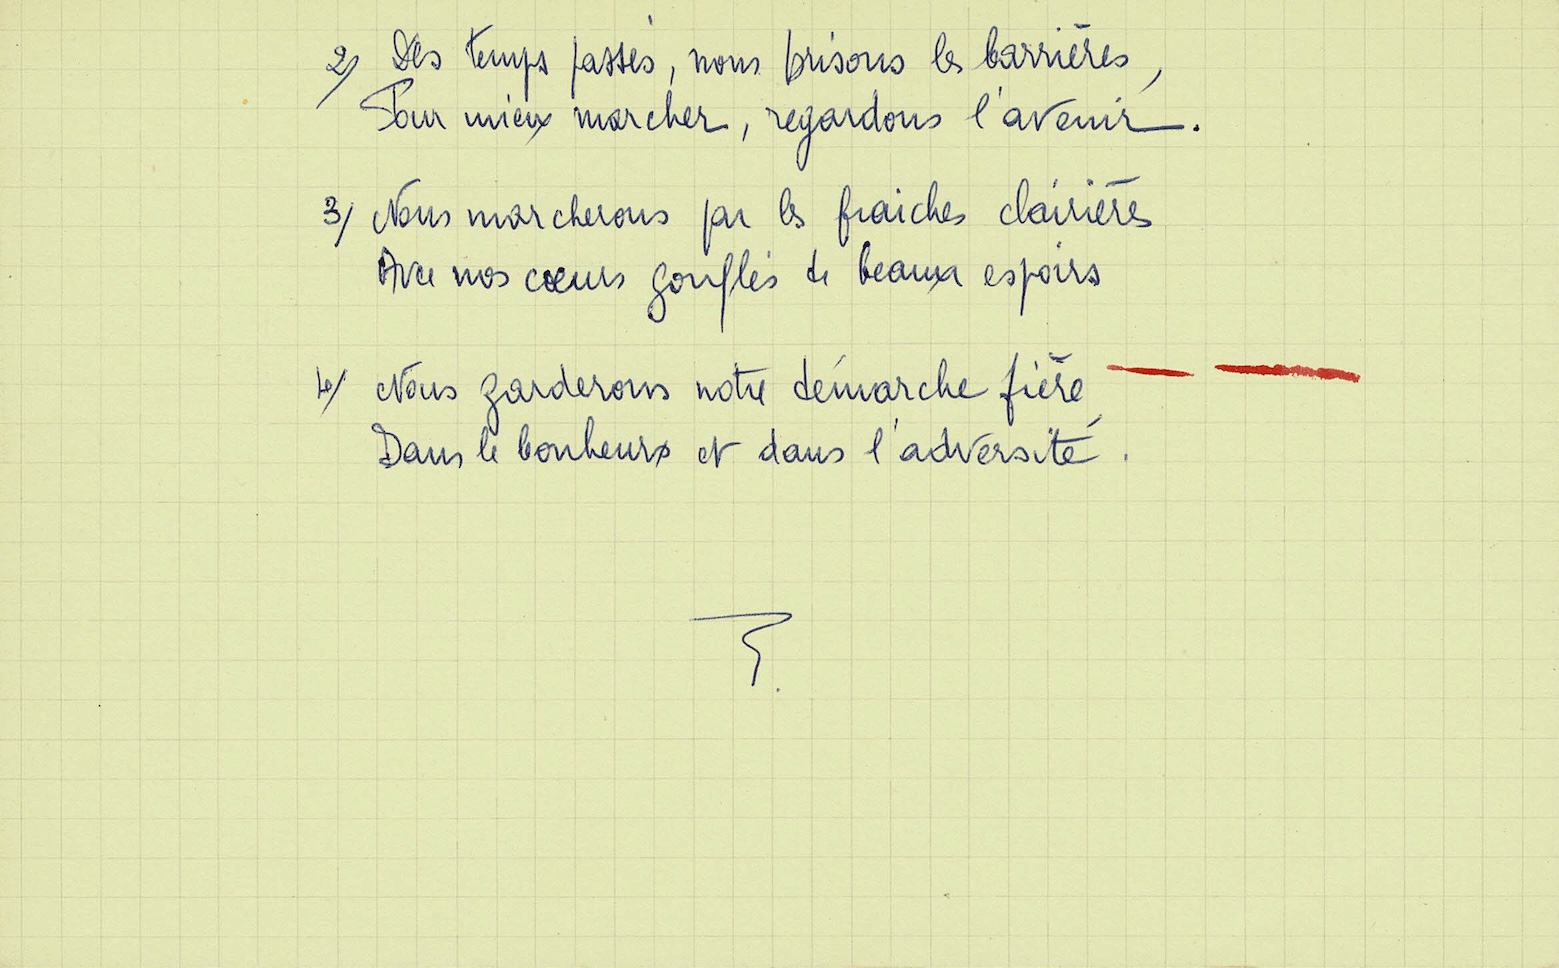 2/ Des temps passés, nous brisons les barrières,
Pour mieux marcher, regardons l'avenir.
3/ Nous marcherons par les fraiches clairières
Avec nos cœurs gonflés de beaux espoirs
4/ Nous garderons notre démarche fière
Dans le bonheur et dans l'adversité.